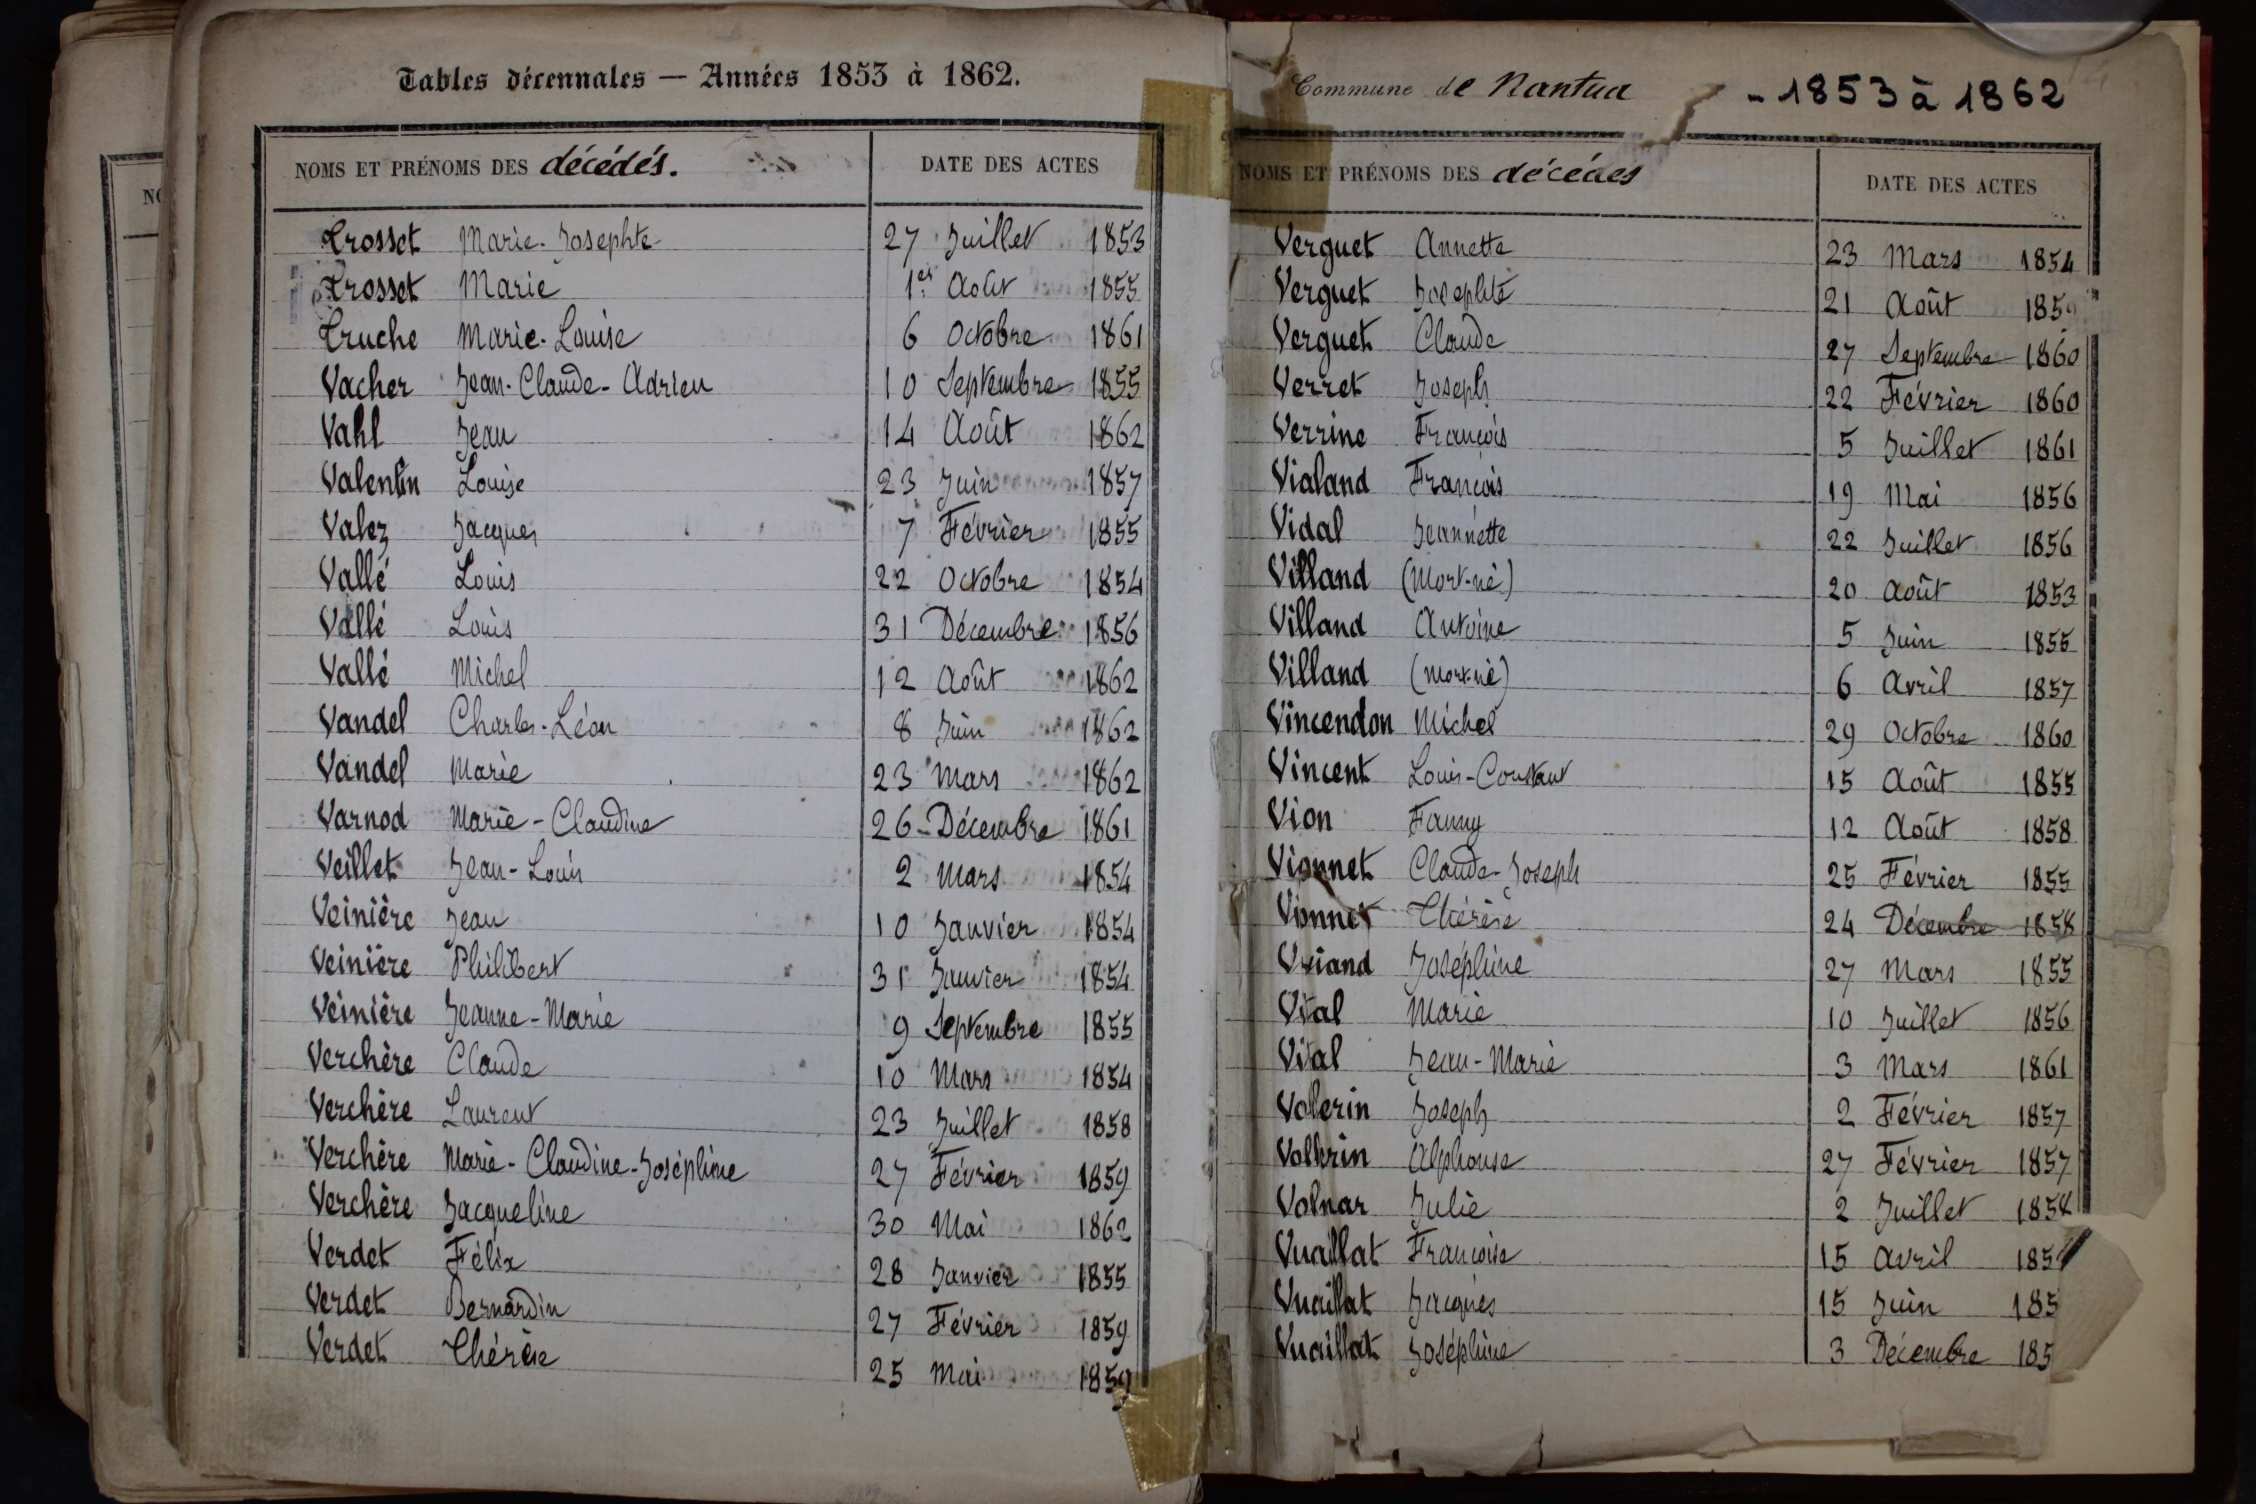 Tables décennales — Années 1853 à 1862.
NOMS ET PRÉNOMS DES décédés. DATE DES ACTES
Trosset Marie-Josephte 27 Juillet 1853
Trosset Marie 1er Août 1855
Truche Marie-Louise 6 Octobre 1861
Vacher Jean-Claude-Adrien 10 Septembre 1855
Vahl Jean 14 Août 1862
Valentin Louise 23 Juin 1857
Valez Jacques 7 Février 1855
Vallé Louis 22 Octobre 1854
Vallé Louis 31 Décembre 1856
Vallé Michel 12 Août 1862
Vandel Charles-Léon 8 Juin 1862
Vandel Marie 23 Mars 1862
Varnod Marie-Claudine 26 Décembre 1861
Veillet Jean-Louis 2 Mars 1854
Veinière Jean 10 Janvier 1854
Veinière Philibert 31 Janvier 1854
Veinière Jeanne-Marie 9 Septembre 1855
Verchère Claude 10 Mars 1854
Verchère Laurent 23 Juillet 1858
Verchère Marie-Claudine-Joséphine 27 Février 1859
Verchère Jacqueline 30 Mai 1862
Verdet Félix 28 Janvier 1855
Verdet Bernardin 27 Février 1859
Verdet Thérèse 25 Mai 1859
Commune de Nantua - 1853 à 1862
NOMS ET PRÉNOMS DES décédés DATE DES ACTES
Verguet Annette 23 Mars 1854
Verguet Josephte 21 Août 185
Verguet Claude 27 Septembre 1860
Verret Joseph 22 Février 1860
Verrine François 5 Juillet 1861
Vialand François 19 Mai 1856
Vidal Jeannette 22 Juillet 1856
Villand (Mort-né) 20 Août 1853
Villand Antoine 5 Juin 1855
Villand (Mort-né) 6 Avril 1857
Vincendon Michel 29 Octobre 1860
Vincent Louis-Constant 15 Août 1855
Vion Fanny 12 Août 1858
Vionnet Claude-Joseph 25 Février 1855
Vionnet Thérèse 24 Décembre 1858
Vriand Joséphine 27 Mars 1855
Vital Marie 10 Juillet 1856
Vital Jean-Marie 3 Mars 1861
Volerin Joseph 2 Février 1857
Vollerin Alphonse 27 Février 1857
Volnar Julie 2 Juillet 1858
Vuaillat Françoise 15 Avril 185
Vuaillat Jacques 15 Juin 185
Vuaillat Joséphine 3 Décembre 185